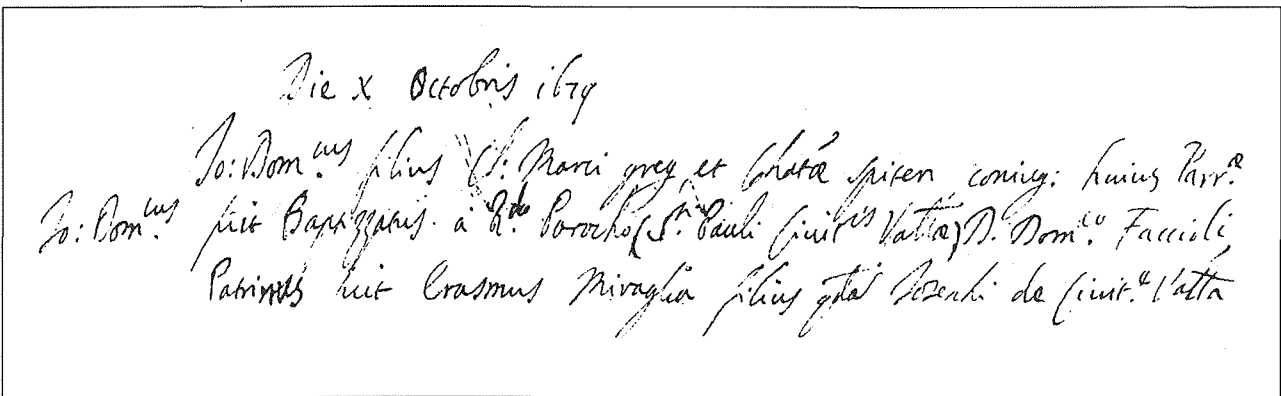 Die X Octobris 1679
Jo: Dom.cus filius Cl: Marci grey, et Spiteri coniug: huius Parr.æ
Jo: Dom.cus fuit Baptizzatus à R.do Parocho (S.ti Pauli Civit.is Vallta) D. Dom.co Faccioli
Patrinus fuit Erasmus Miraglia filius qdā Josephi de Civit.e Vallta